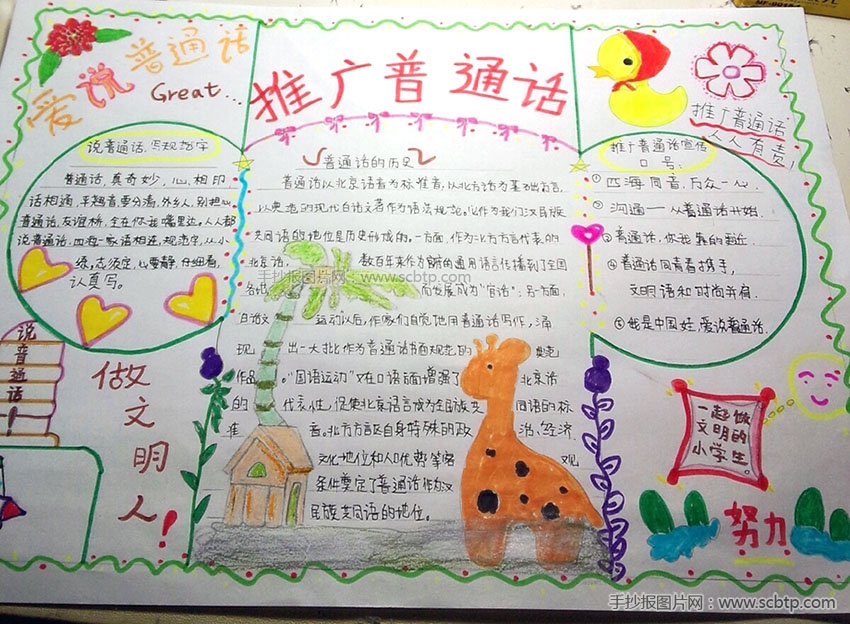 爱说普通话
Great...
推广普通话
推广普通话
人人有责!
说普通话,写规范字
普通话,真奇妙,心心相印
话相通,平翘音要分清,外乡人,别担心
普通话,友谊桥,全在你我嘴里边,人人都
说普通话,四海一家语相连,规范字,从小
练,态须定,心要静,仔细看,
认真写。
普通话的历史
普通话以北京语音为标准音,以北方话为基础方言,
以典范的现代白话文著作为语法规范。作为我们汉民族
共同语的地位是历史形成的。一方面,作为北方方言代表的
北京话,数百年来作为官府的通用语言传播到了全国
各地 而发展成为“官话”;另一方面,
白话文 运动以后,作家们自觉地用普通话写作,涌
现 出一大批作为普通话书面规范的 典范
作品。“国语运动”又在口语方面增强了 北京话
的 代表性,促使北京语音成为全民族共 同语的标
准 音。北方方言区自身特殊的政 治、经济、
文化地位和人口优势等客 观
条件奠定了普通话作为汉
民族共同语的地位。
推广普通话宣传
口号:
①四海同音,万众一心.
②沟通——从普通话开始.
③普通话,你我靠的更近.
④普通话同青春携手,
文明语和时尚并肩.
⑤我是中国娃,爱说普通话.
说普通话!
做文明人!
一起做
文明的
小学生。
努力
手抄报图片网:www.scbtp.com
手抄报图片网:www.scbtp.com